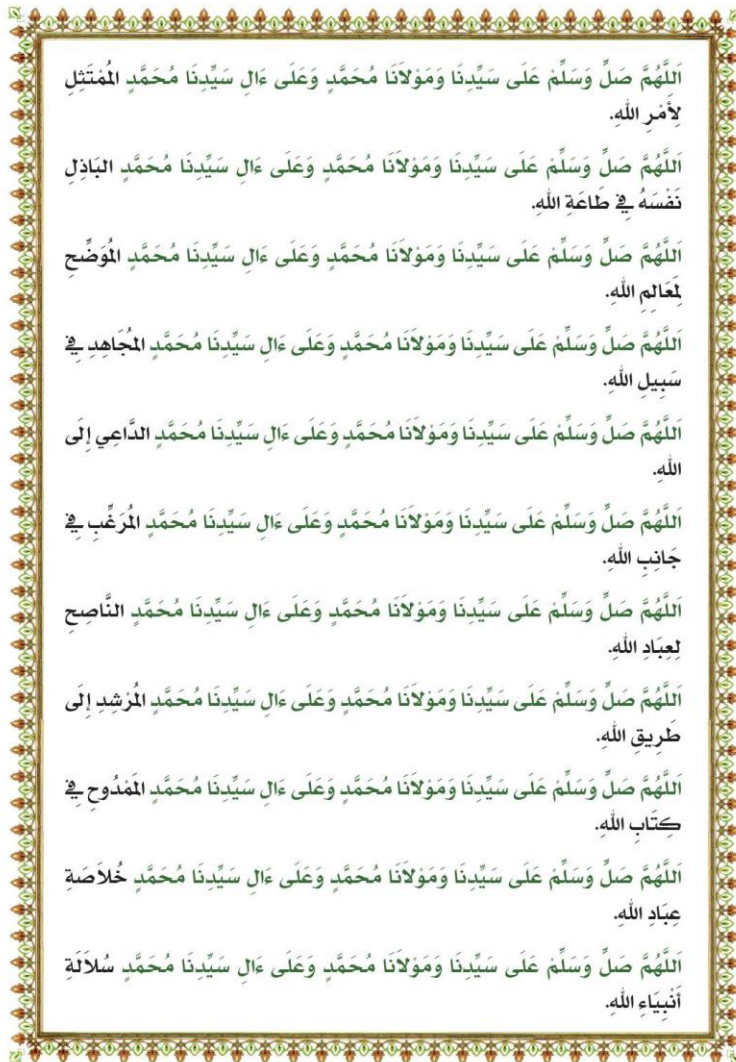 اَللَّهُمَّ صَلِّ وَسَلِّمْ عَلَى سَيِّدِنَا وَمَوْلَانَا مُحَمَّدٍ وَعَلَى ءَالِ سَيِّدِنَا مُحَمَّدٍ الْمُمْتَثِلِ
لِأَمْرِ اللهِ.
اَللَّهُمَّ صَلِّ وَسَلِّمْ عَلَى سَيِّدِنَا وَمَوْلَانَا مُحَمَّدٍ وَعَلَى ءَالِ سَيِّدِنَا مُحَمَّدٍ البَاذِلِ
نَفْسَهُ فِي طَاعَةِ اللهِ.
اَللَّهُمَّ صَلِّ وَسَلِّمْ عَلَى سَيِّدِنَا وَمَوْلَانَا مُحَمَّدٍ وَعَلَى ءَالِ سَيِّدِنَا مُحَمَّدٍ الْمُوَضِّحِ
لِمَعَالِمِ اللهِ.
اَللَّهُمَّ صَلِّ وَسَلِّمْ عَلَى سَيِّدِنَا وَمَوْلَانَا مُحَمَّدٍ وَعَلَى ءَالِ سَيِّدِنَا مُحَمَّدٍ الْمُجَاهِدِ فِي
سَبِيلِ اللهِ.
اَللَّهُمَّ صَلِّ وَسَلِّمْ عَلَى سَيِّدِنَا وَمَوْلَانَا مُحَمَّدٍ وَعَلَى ءَالِ سَيِّدِنَا مُحَمَّدٍ الدَّاعِي إِلَى
اللهِ.
اَللَّهُمَّ صَلِّ وَسَلِّمْ عَلَى سَيِّدِنَا وَمَوْلَانَا مُحَمَّدٍ وَعَلَى ءَالِ سَيِّدِنَا مُحَمَّدٍ الْمُرَغِّبِ فِي
جَانِبِ اللهِ.
اَللَّهُمَّ صَلِّ وَسَلِّمْ عَلَى سَيِّدِنَا وَمَوْلَانَا مُحَمَّدٍ وَعَلَى ءَالِ سَيِّدِنَا مُحَمَّدٍ النَّاصِحِ
لِعِبَادِ اللهِ.
اَللَّهُمَّ صَلِّ وَسَلِّمْ عَلَى سَيِّدِنَا وَمَوْلَانَا مُحَمَّدٍ وَعَلَى ءَالِ سَيِّدِنَا مُحَمَّدٍ الْمُرْشِدِ إِلَى
طَرِيقِ اللهِ.
اَللَّهُمَّ صَلِّ وَسَلِّمْ عَلَى سَيِّدِنَا وَمَوْلَانَا مُحَمَّدٍ وَعَلَى ءَالِ سَيِّدِنَا مُحَمَّدٍ الْمَمْدُوحِ فِي
كِتَابِ اللهِ.
اَللَّهُمَّ صَلِّ وَسَلِّمْ عَلَى سَيِّدِنَا وَمَوْلَانَا مُحَمَّدٍ وَعَلَى ءَالِ سَيِّدِنَا مُحَمَّدٍ خُلَاصَةِ
عِبَادِ اللهِ.
اَللَّهُمَّ صَلِّ وَسَلِّمْ عَلَى سَيِّدِنَا وَمَوْلَانَا مُحَمَّدٍ وَعَلَى ءَالِ سَيِّدِنَا مُحَمَّدٍ سُلَالَةِ
أَنْبِيَاءِ اللهِ.